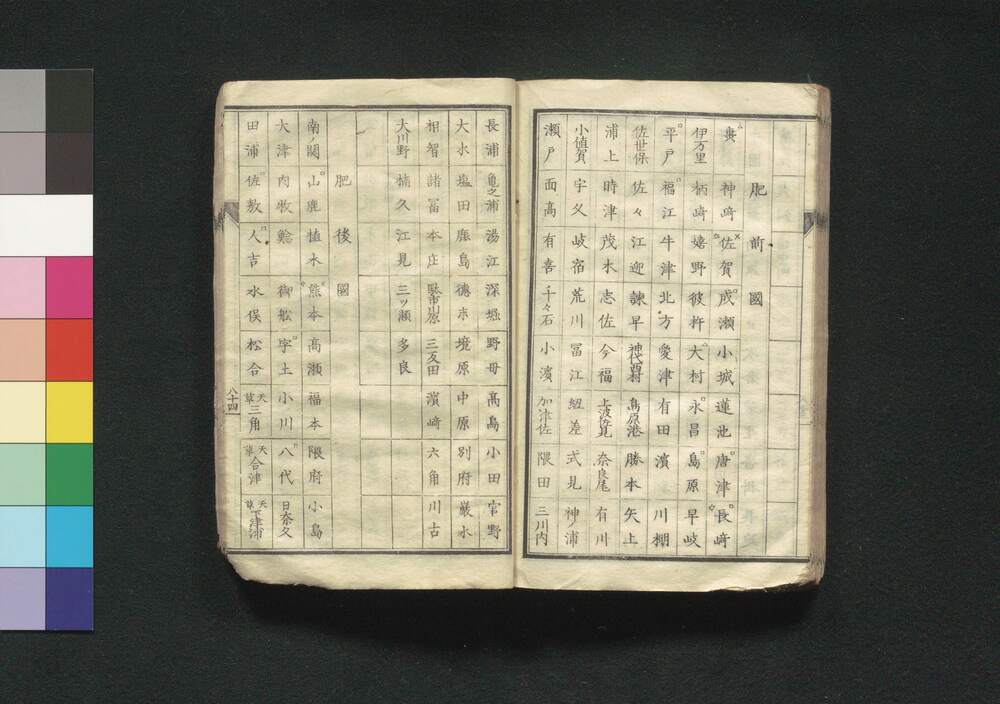 肥前國
神﨑 佐賀 成瀬 小城 蓮池 唐津 長﨑
伊万里 栖﨑 嬉野 彼杵 大村 永昌 島原 早岐
平戸 福江 牛津 北方 愛津 有田 濱 川棚
佐世保 佐々 江迎 諫早 神代西村 島原港 勝本 矢上
浦上 時津 茂木 志佐 今福 上波佐見 奈良尾 有川
小値賀 宇久 岐宿 荒川 冨江 紐差 式見 神ノ浦
瀬戸 面高 有喜 千々石 小濱 加津佐 隈田 三川内
長浦 亀之浦 湯江 深堀 野母 髙島 小田 官野
大水 塩田 鹿島 德末 境原 中原 別府 巌水
相智 諸冨 本庄 馱市川原 三反田 濱﨑 六角 川古
大川野 楠久 江見 三ツ瀬 多良
肥後國
南ノ関 山鹿 植木 熊本 髙瀬 福本 隈府 小島
大津 内牧 鯰 御舩 宇土 小川 八代 日奈久
田浦 佐敷 人吉 水俣 松合 天草三角 天草合津 天草下津浦
八十四